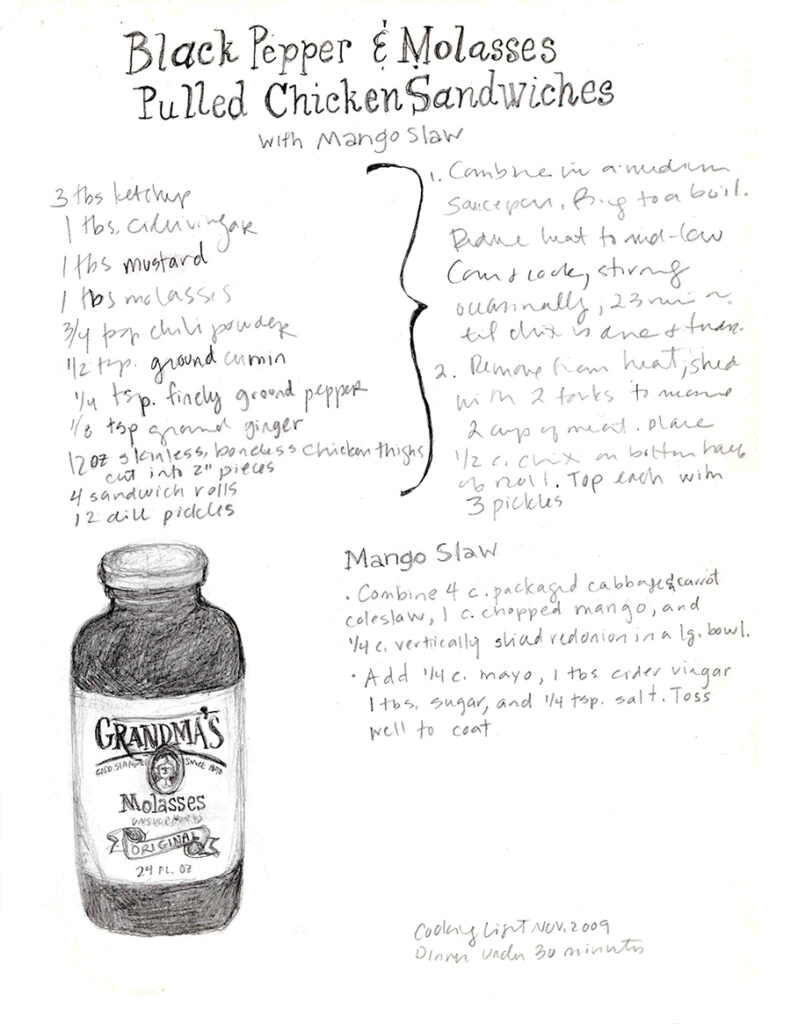 Black Pepper & Molasses
Pulled Chicken Sandwiches
with Mango Slaw
3 tbs ketchup
1 tbs. cider vinegar
1 tbs mustard
1 tbs molasses
3/4 tsp chili powder
1/2 tsp. ground cumin
1/4 tsp. finely ground pepper
1/8 tsp ground ginger
12 oz skinless, boneless chicken thighs
cut into 2" pieces
4 sandwich rolls
12 dill pickles
1. Combine in a medium
saucepan. Bring to a boil.
Reduce heat to med-low
Cover & cook, stirring
occasionally, 23 min or
til chix is done & tender.
2. Remove from heat, shred
with 2 forks to measure
2 cups of meat. Place
1/2 c. chix on bottom half
of roll. Top each with
3 pickles
Mango Slaw
• Combine 4 c. packaged cabbage & carrot
coleslaw, 1 c. chopped mango, and
1/4 c. vertically sliced red onion in a lg. bowl.
• Add 1/4 c. mayo, 1 tbs cider vinegar
1 tbs. sugar, and 1/4 tsp. salt. Toss
well to coat
GRANDMA'S
Since 1890
Molasses
UNSULPHURED
ORIGINAL
24 FL. OZ
Cooking Light Nov. 2009
Dinner under 30 minutes